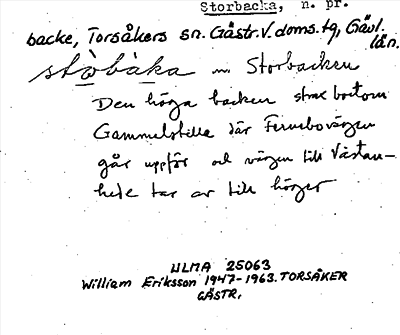 Storbacka, n. pr.
backe, Torsåkers sn. Gästr. V. doms. tg, Gävl. län.
stòbàka — Storbacken
Den höga backen strax bortom
Gammelstilla där Fernebovägen
går uppför och vägen till Västan-
hede tar av till höger
ULMA 25063
William Eriksson 1947-1963. TORSÅKER
GÄSTR.